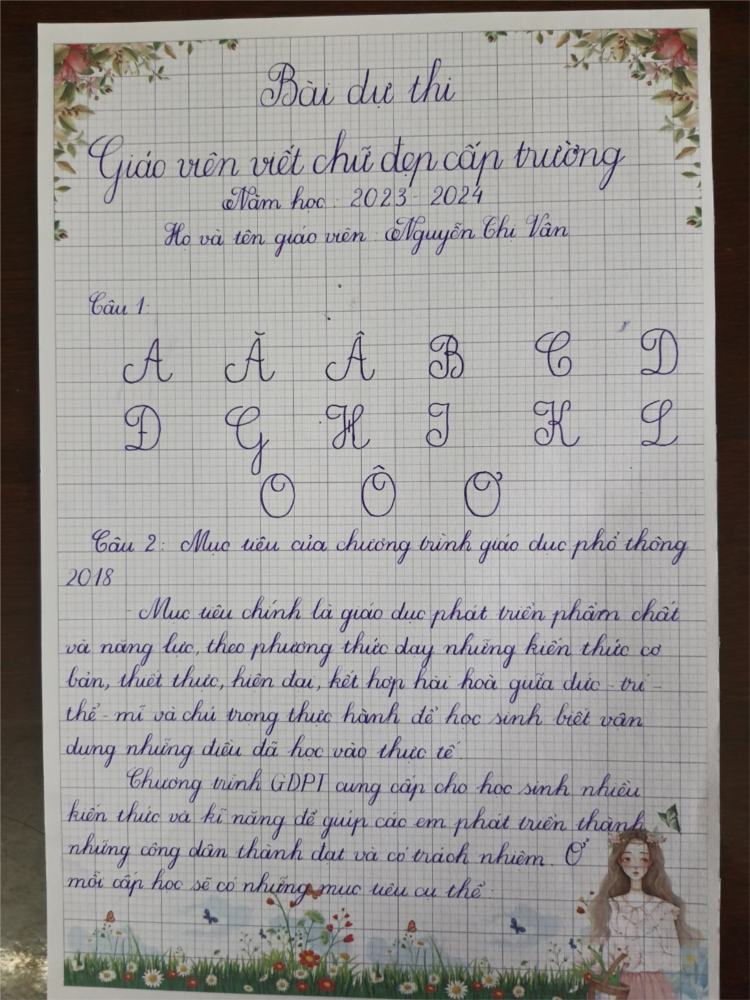 Bài dự thi
Giáo viên viết chữ đẹp cấp trường
Năm học: 2023 - 2024
Họ và tên giáo viên: Nguyễn Thị Vân
Câu 1:
A Ă Â B C D
Đ G H I K L
O Ô Ơ
Câu 2: Mục tiêu của chương trình giáo dục phổ thông
2018
- Mục tiêu chính là giáo dục phát triển phẩm chất
và năng lực, theo phương thức dạy những kiến thức cơ
bản, thiết thực, hiện đại, kết hợp hài hoà giữa đức - trí -
thể - mĩ và chú trọng thực hành để học sinh biết vận
dụng những điều đã học vào thực tế.
Chương trình GDPT cung cấp cho học sinh nhiều
kiến thức và kĩ năng để giúp các em phát triển thành
những công dân thành đạt và có trách nhiệm. Ở
mỗi cấp học sẽ có những mục tiêu cụ thể.